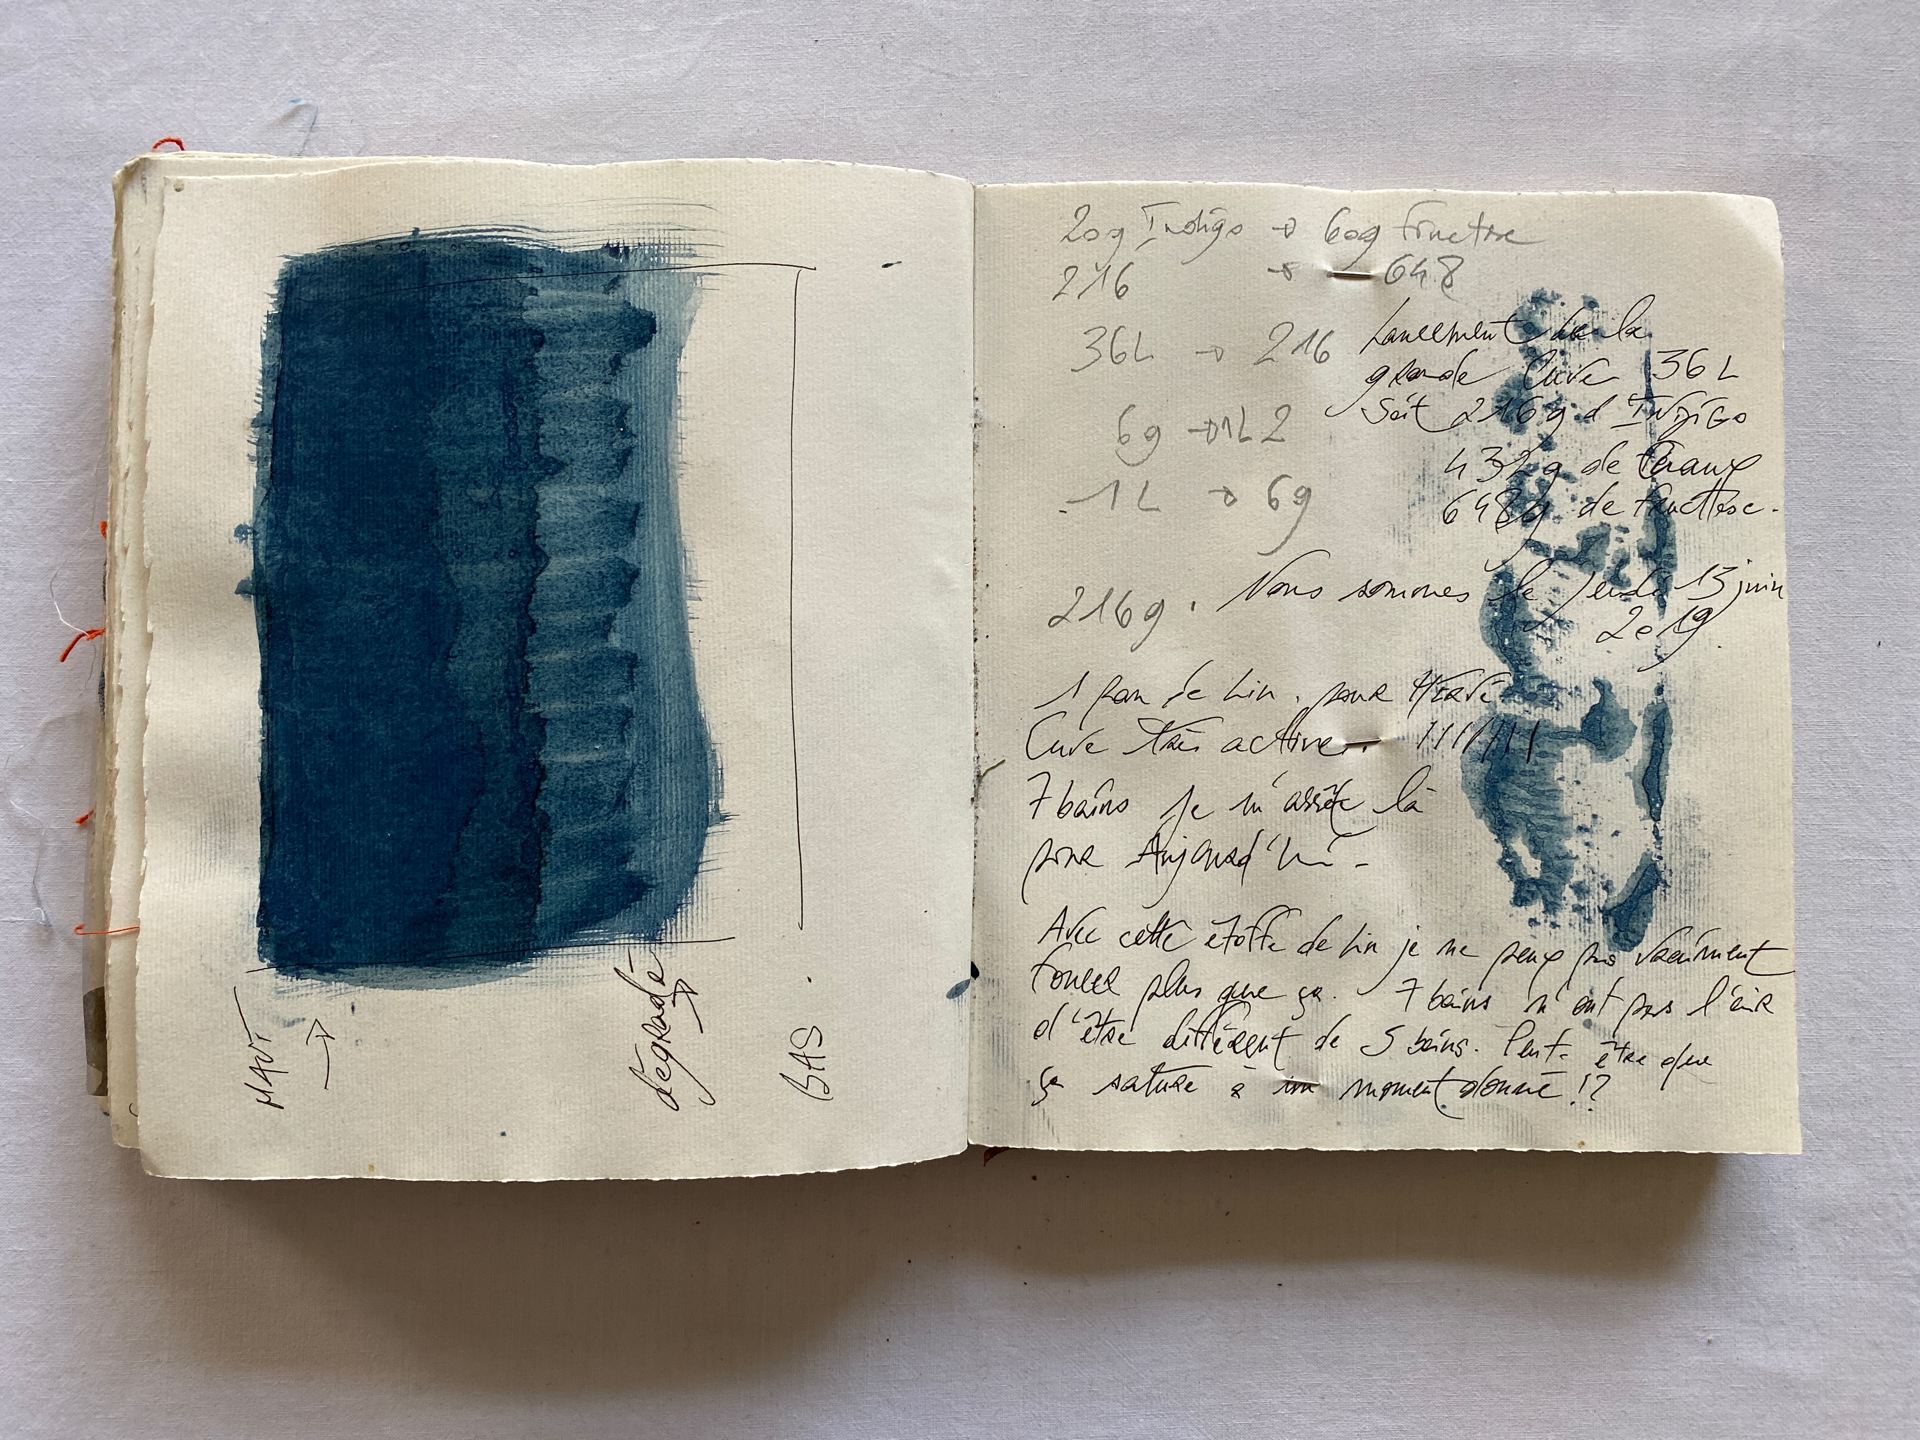 HAUT →
dégradé →
BAS.
20g Indigo → 60g fructose
216 → 648
36L → 216
6g → 1L
1L → 6g
216g.
Lancement de la
grande Cuve 36L
soit 216g d'INDIGO
432g de Chaux
648g de fructose.
Nous sommes le jeudi 13 juin
2019.
1 pan de lin. pour Hervé
Cuve très active. 1111111
7 bains je m'arrête là
pour Aujourd'hui -
Avec cette étoffe de lin je ne peux pas vraiment
foncer plus que ça. 7 bains n'ont pas l'air
d'être différent de 5 bains. Peut-être que
ça sature à un moment donné !?